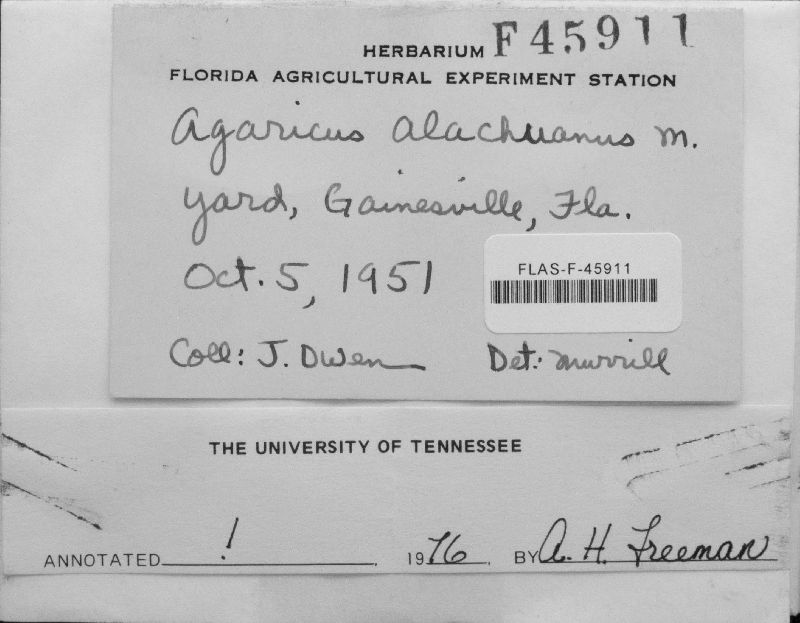 HERBARIUM F45911
FLORIDA AGRICULTURAL EXPERIMENT STATION
Agaricus alachuanus M.
yard, Gainesville, Fla.
Oct. 5, 1951
FLAS-F-45911
Coll: J. Owen Det: Murrill
THE UNIVERSITY OF TENNESSEE
ANNOTATED ! 1976 BY A. H. Freeman